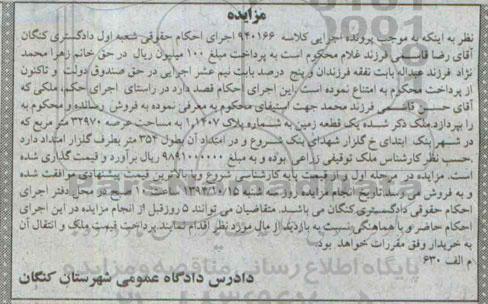 مزایده
نظر به اینکه به موجب پرونده اجرایی کلاسه ۹۴۰۱۶۶ اجرای احکام حقوقی شعبه اول دادگستری کنگان
آقای رضا قاسمی فرزند غلام محکوم است به پرداخت مبلغ ۱۰۰ میلیون ریال در حق خانم زهرا محمد
نژاد فرزند عبداله بابت نفقه فرزندان و پنج درصد بابت نیم عشر اجرایی در حق صندوق دولت و تاکنون
از پرداخت محکوم به امتناع نموده است این اجرای احکام قصد دارد در راستای اجرای حکم، ملکی که
آقای قاسمی فرزند محمد جهت استیفای محکوم به معرفی نموده به فروش رسانده و محکوم به
را بپردازد ملک ذکر شده یک قطعه زمین به شماره پلاک ۱،۱۴۰۷ به مساحت عرصه ۳۲۹۷۰ متر مربع که
در شهر بنک ابتدای خ گلزار شهدای بنک شروع و در امتداد آن بطول ۳۵۲ متر بطرف گلزار امتداد دارد
.حسب نظر کارشناس ملک توقیفی زراعی بوده و به مبلغ ۹۸۹۱۰۰۰۰۰۰ ریال برآورد و قیمت گذاری شده
است. مزایده در مرحله اول از قیمت پایه کارشناسی شروع و با بالاترین قیمت پیشنهادی موافقت شده
و به فروش می رسد تاریخ انجام مزایده روز سه شنبه ۱۳۹۴/۱۰/۱۵ ساعت صبح در محل دفتر اجرای
احکام حقوقی دادگستری کنگان می باشد. متقاضیان می توانند ۵ روز قبل از انجام مزایده در این اجرای
احکام حاضر و با هماهنگی نسبت به بازدید از مال مورد نظر اقدام نمایند پرداخت قیمت ملک و انتقال آن
به خریدار وفق مقررات خواهد بود
م الف ۶۳۰
دادرس دادگاه عمومی شهرستان کنگان
ParsNamadData
پایگاه اطلاع رسانی مناقصه و مزایده